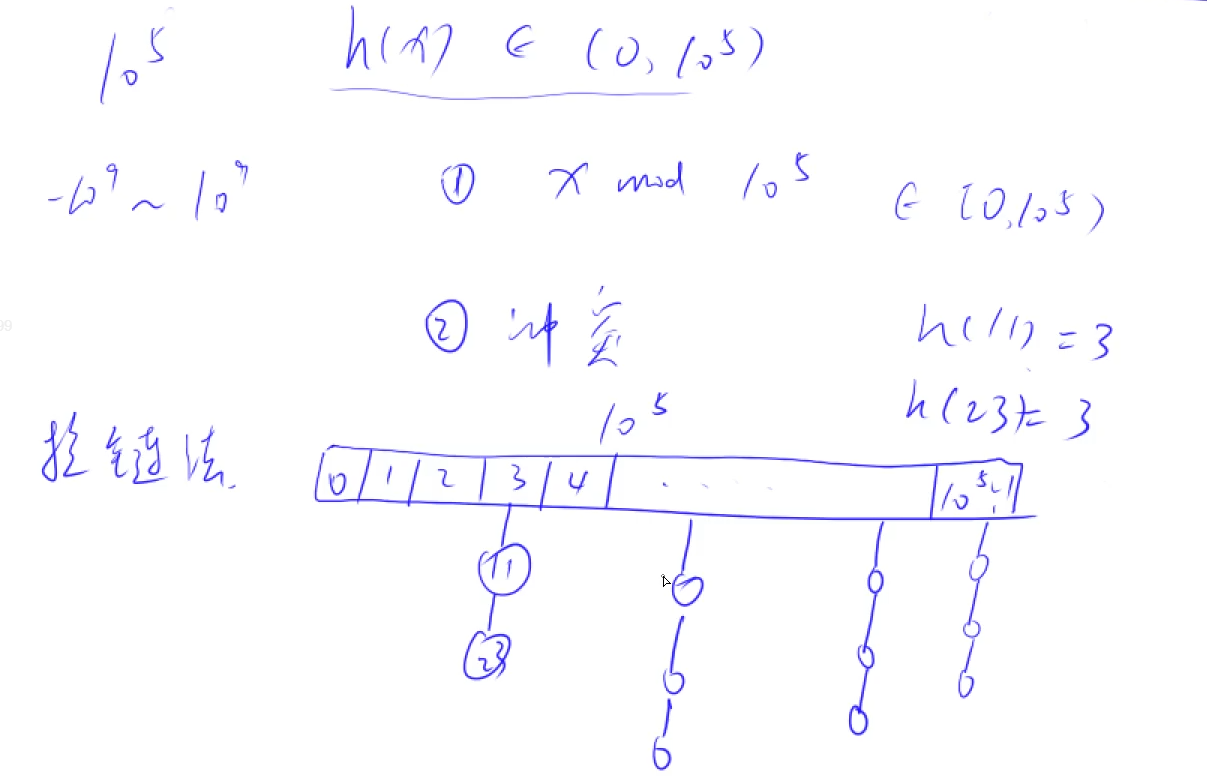 10⁵ h(x) ∈ (0, 10⁵)
-10⁹ ~ 10⁹ ① x mod 10⁵ ∈ [0, 10⁵)
② 冲突 h(11) = 3
h(23) = 3
拉链法.
10⁵
0 1 2 3 4 . . . . 10⁵-1
11
23